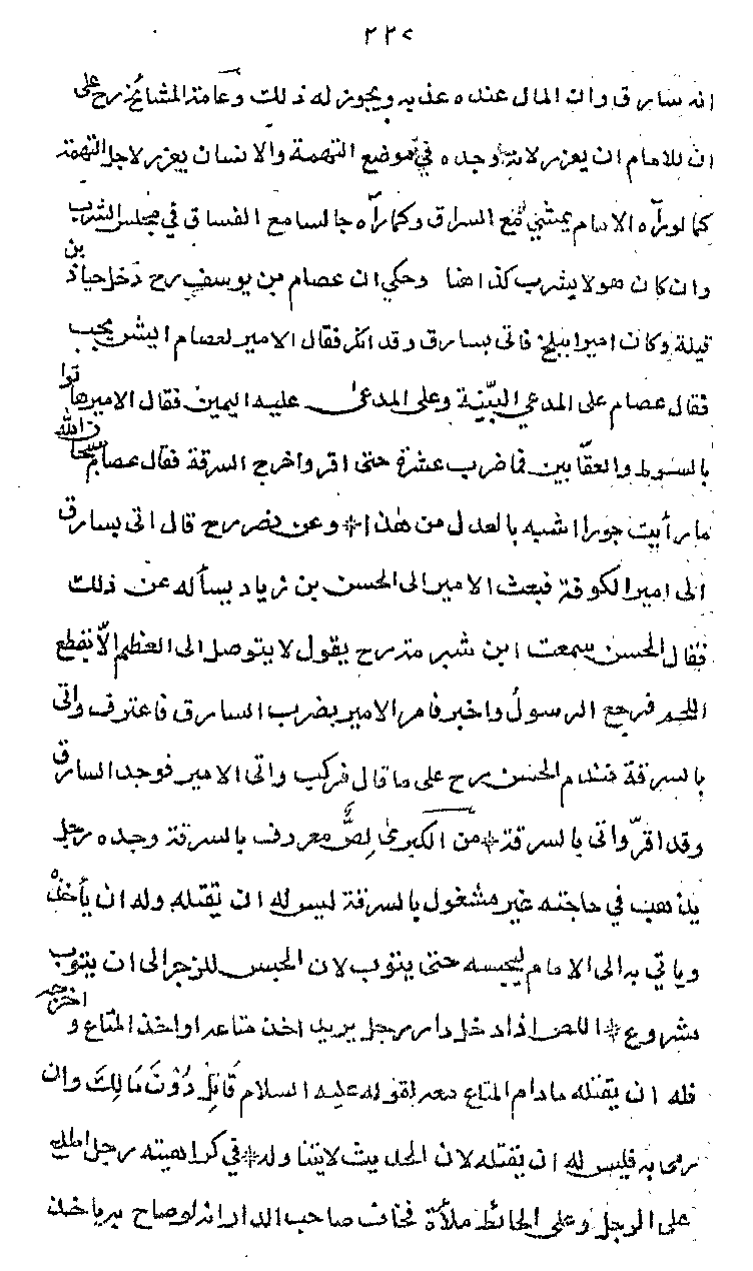 ٢٢٧
انه سارق وان المال عنده عذبه ويجوز له ذلك وعامة المشائخ رح على
ان للامام ان يعزر لانه وجده في موضع التهمة والانسان يعزر لاجل التهمة
كما لو رآه الامام يمشي مع السراق وكما رآه جالسا مع الفساق في مجلس الشرب
وان كان هو لا يشرب كذا هنا وحكي ان عصام بن يوسف رح دخل حيان بن
قبيلة وكان اميرا ببلخ فاتى بسارق وقد انكر فقال الامير لعصام ايش يجب
فقال عصام على المدعي البيّنة وعلى المدعى عليه اليمين فقال الامير هاتوا
بالسوط والعقابين فما ضرب عشرة حتى اقر واخرج السرقة فقال عصام سبحان الله
ما رأيت جورا اشبه بالعدل من هذا * وعن نصر رح قال اتى بسارق
الى امير الكوفة فبعث الامير الى الحسن بن زياد يسأله عن ذلك
فقال الحسن سمعت ابن شبرمة رح يقول لا يتوصل الى العظم الّا بقطع
اللحم فرجع الرسول واخبر فامر الامير بضرب السارق فاعترف واتى
بالسرقة فندم الحسن رح على ما قال فركب واتى الامير فوجد السارق
وقد اقرّ واتى بالسرقة * من الكبرى لصٌّ معروف بالسرقة وجده رجل
يذهب في حاجته غير مشغول بالسرقة ليس له ان يقتله وله ان يأخذه
وياتي به الى الامام ليحبسه حتى يتوب لان الحبس للزجر الى ان يتوب
مشروع * اللص اذا دخل دار رجل يريد اخذ متاعه او اخذ المتاع واخرجه
فله ان يقتله ما دام المتاع معه لقوله عليه السلام قَاتِل دُوْنَ مَالِكَ وان
رمى به فليس له ان يقتله لان الحديث لا يتناوله * في كراهيته رجل اطلع
على الرجل وعلى الحائط ملأة فخاف صاحب الدار انه لو صاح به ياخذ